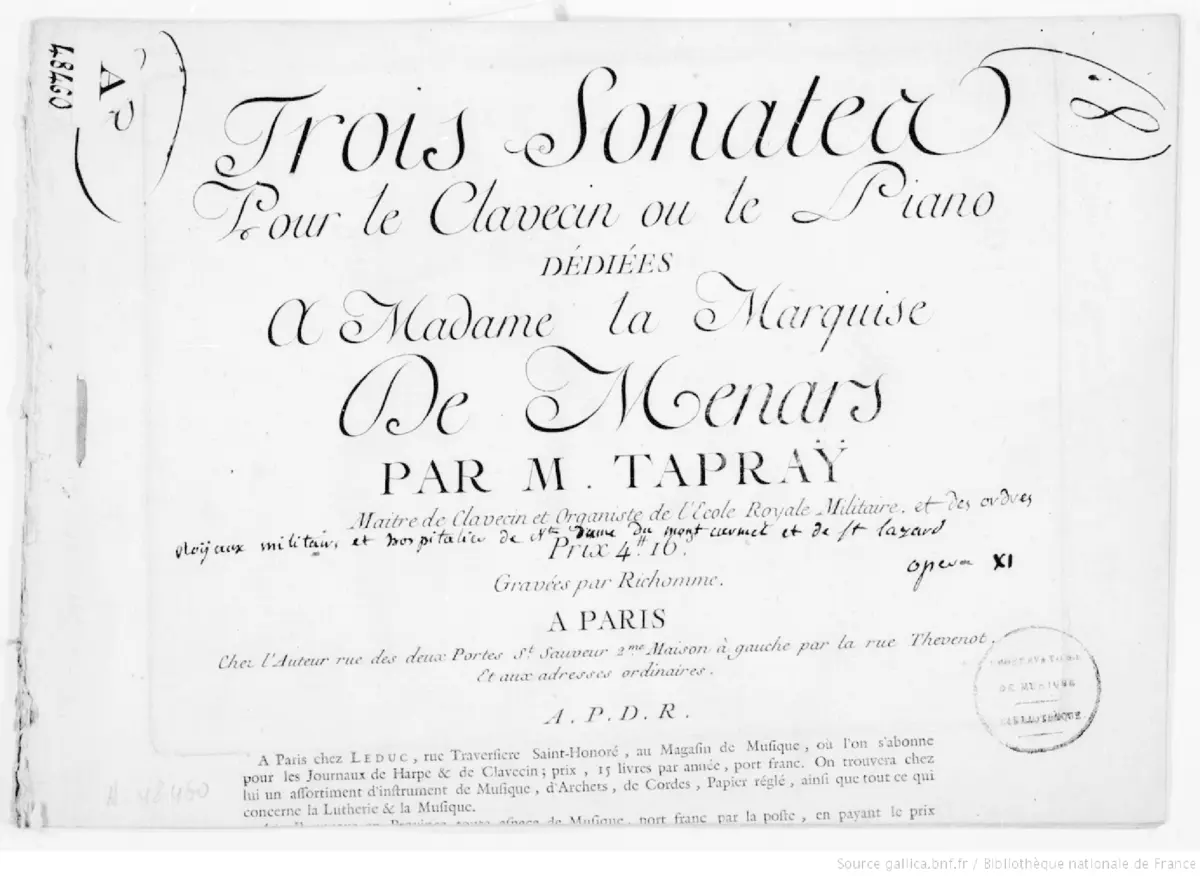 48460
AP
8
Trois Sonates
Pour le Clavecin ou le Piano
DÉDIÉES
A Madame la Marquise
De Menars
PAR M. TAPRAŸ
Maitre de Clavecin et Organiste de l'Ecole Royale Militaire. et des ordres
roÿaux militaires et hospitalier de Nte Dame du mont carmel et de st lazard
Prix 4# 16s
opera XI
Gravées par Richomme.
A PARIS
Chez l'Auteur rue des deux Portes St. Sauveur 2me Maison à gauche par la rue Thevenot.
Et aux adresses ordinaires.
A. P. D. R.
CONSERVATOIRE
DE MUSIQUE
BIBLIOTHÈQUE
A Paris chez LEDUC, rue Traversiere Saint-Honoré, au Magasin de Musique, où l'on s'abonne
pour les Journaux de Harpe & de Clavecin; prix, 15 livres par année, port franc. On trouvera chez
lui un assortiment d'instrument de Musique, d'Archets, de Cordes, Papier réglé, ainsi que tout ce qui
concerne la Lutherie & la Musique.
en Province toute espece de Musique, port franc par la poste, en payant le prix
A. 48460
Source gallica.bnf.fr / Bibliothèque nationale de France